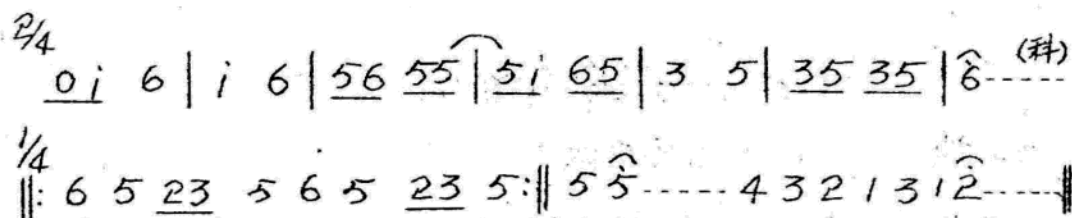 2/4
0i 6 | i 6 | 56 55 | 5i 65 | 3 5 | 35 35 | 6------ (科)
1/4
‖: 6 5 23 5 6 5 23 5 :‖ 5 5----- 4 3 2 1 3 1 2------‖